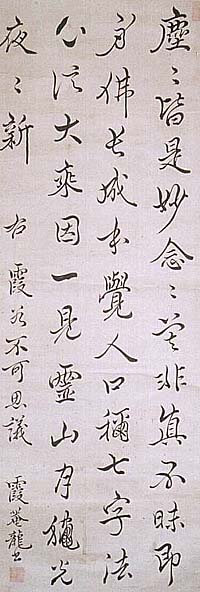 塵〻皆是妙念〻豈非真不昧即
身佛長成本覺人口稱七字法
心大乘因一見靈山月猶光
夜〻新 右霞谷不可思議 霞菴龍書